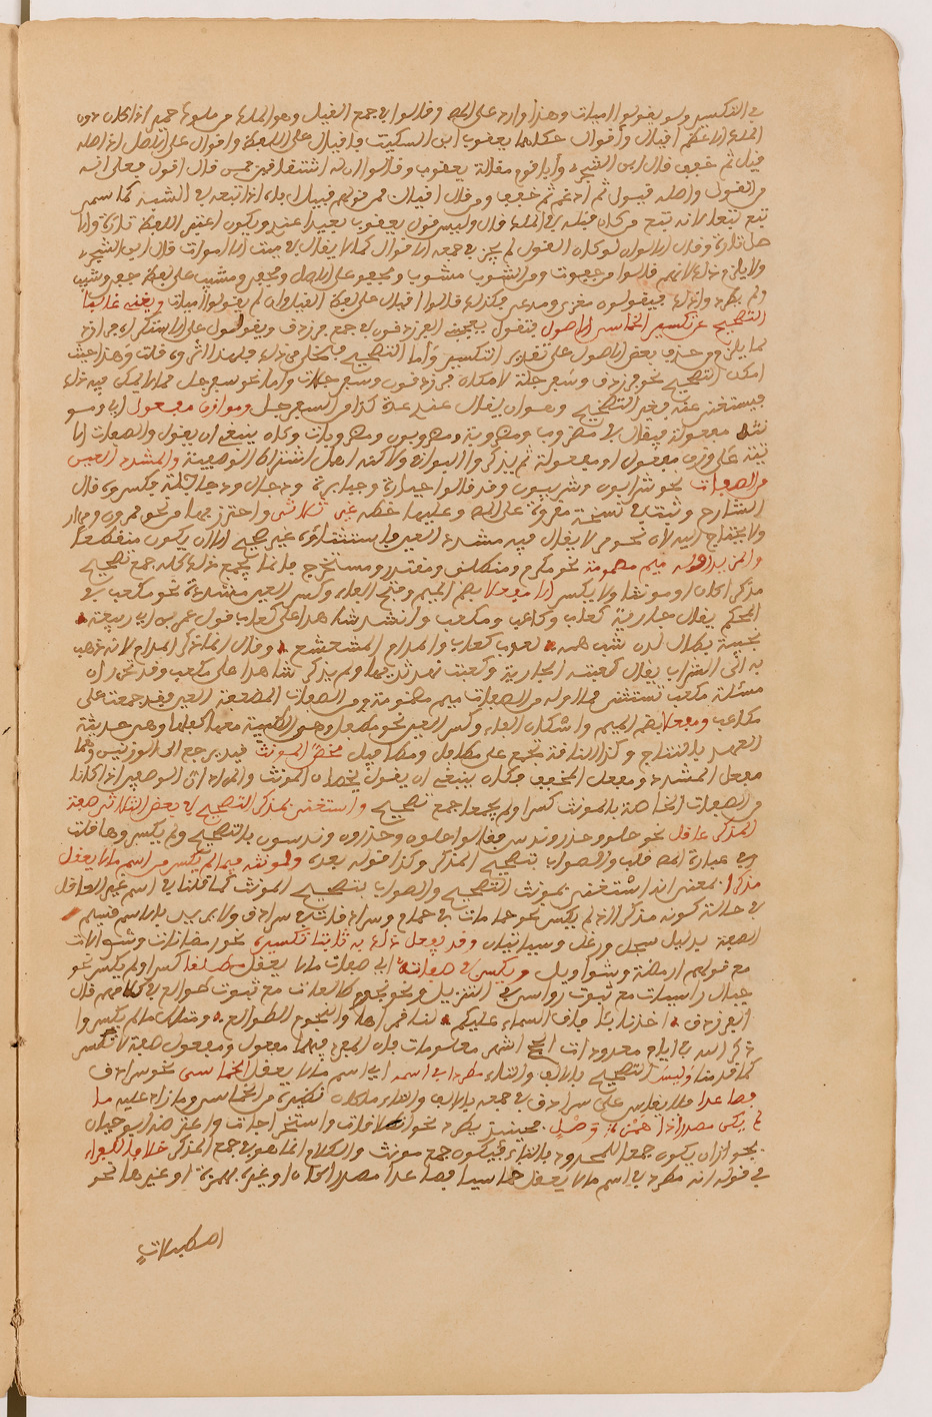 في التكسير ولم يقولوا أميات وهذا وارد على المص وقالوا في جمع القيل وهو الملك من ملوك حمير اذا كان دون
الملك الاعظم اقيال وأقوال حكاهما يعقوب ابن السكيت فاقيال على اللفظ واقوال على الاصل اذ اصله
قيل ثم خفف قال ابن الشجري وأباه قوم مقالة يعقوب وقالوا انه اشتقاقين فمن قال اقوال فعلى انه
من القول واصله قيول ثم ادغم ثم خفف ومن قال اقيال فمن قولهم تقيل اباه اذا تبعه في الشبه كما سمي
تبع تبعا لانه تبع من كان قبله في الملك قال وليس قول يعقوب بعيدا عندي ويكون اعتبر اللفظ تارة والا
صل تارة وقال الاولون لو كان من القول لم يجز في جمعه الا اقوال كما لا يقال في ميت الا اموات قال ابن الشجري
ولا يلزم ذلك لانهم قالوا من جفوت ومن الشوب مشوب ومجفو على الاصل ومجفي ومشيب على لفظ جفي وشيب
ولم يطرد وانما فيقولون مغزي ومدعي فكذلك قالوا اقيال على لفظ القيل وان لم يقولوا أميات ويغني غالبا
التصحيح عن تكسير الخماسي الاصول فتقول يعجبني الفرزدقون في جمع فرزدق ويقولون على الاستكراه فرازد
مما يلزم من حذف بعض الاصول على تقدير التكسير وأما التصحيح فمخلص من ذلك فلهذا اثروه قلت وهذا حيث
امكن التصحيح نحو فرزدق وسفرجلة لامكان فرزدقون وسفرجلات وأما نحو سفرجل مما لا يمكن فيه ذلك
فيستغنى عنه بغير التصحيح وهو ان يقال عندي عدة كذا من السفرجل وموازن مفعول اي ومو
نثه مفعولة فيقال في مضروب ومضروبة مضروبون ومضروبات وكان ينبغي ان يقول والصفات الا
تية على وزن مفعول او مفعولة ثم يذكر البواقي ولاكنه اهمل اشتراط الوصفية والمشدد العين
من الصفات نحو شرابون وشريبون وقد قالوا جبارة وجبابرة ودجال ودجاجلة فكسروه قال
الشارح وثبت في نسخة مقروة على المص وعليها خطه غير ثلاثي واحترز بها من نحو مر ومرار
ولا يحتاج اليه لان نحو مر لا يقال فيه مشدد العين فاستثناؤه غير صحيح الا ان يكون منقطعا
والمزيد اوله ميم مضمومة نحو مكرم ومنطلق ومقتدر ومستخرج فانما يجمع ذلك كله جمع تصحيح
مذكرا كان او مؤنثا ولا يكسر الا مفعلا بضم الميم وفتح الفاء وكسر العين مشددة نحو مكعب في
المحكم يقال جارية كعاب وكاعب ومكعب وانشد شاهدا على كعاب قول عمر بن ابي ربيعة
نجيبة بطال لدن شب همه لعوب كعاب والمدام المشعشع وقال انما ذكر المدام لانه ذهب
به الى الشراب يقال كعبت الجارية وكعبت نهد ثديها ولم يذكر شاهدا على مكعب وقد تحرر ان
مسئلة مكعب تستثنى مما اوله من الصفات ميم مضمومة ومن الصفات المضعفة العين فقد جمعت على
مكاعب ومفعلا بضم الميم واسكان الفاء وكسر العين نحو مطفل وهي الظبية معها طفلها وهي حديثة
العهد بالنتاج وكذا الناقة تجمع على مطافل ومطافيل مختص المؤنث قيد يرجع الى الوزنين وهما
مفعل المشدد ومفعل المخفف وكان ينبغي ان يقول يخصان المؤنث والمراد ان الوصفين اذا كانا
من الصفات الخاصة بالمؤنث كسرا ولم يجمعا جمع تصحيح واستغني بمذكر التصحيح في بعض الثلاثي صفة
لمذكر عاقل نحو حلو وحذر وندس فقالوا حلوون وحذرون وندسون بالتصحيح ولم يكسروها قلت
وفي عبارة المص قلب والصواب تصحيح المذكر وكذا قوله بعده ولمونثه فيما لم يكسر من اسم ما لا يعقل
مذكرا بمعنى انه استغني بمونث التصحيح والصواب بتصحيح المونث كما قلنا في اسم غير العاقل
في حالة كونه مذكرا ان لم يكسر نحو حمامات في حمام وسرادقات في سرادق ولا يريد بالاسم قسيم
الصفة بدليل سجل ورغل وسيأتيان وقد يفعل ذلك به ثابتا تكسيره نحو رمضانات وشوالات
مع قولهم ارمضة وشواويل ويكسر في صفات اي صفات ما لا يعقل مطلقا كسرا ولم يكسر نحو
جبال راسيات مع ثبوت رواسي في التنزيل ونحو نجوم طالعات مع ثبوت طوالع في كلامهم قال
الفرزدق اخذنا بئافاق السماء عليكم لنا قمراها والنجوم الطوالع ومثال ما لم يكسروا
ذكر الله في ايام معدودات الحج اشهر معلومات فان المفرد فيهما معدود ومفعول صفة لا تكسر
كما قدمنا وليس التصحيح بالالف والتاء مطردا في اسم اي اسم ما لا يعقل الخماسي نحو سرادق
فصاعدا فلا يقاس على سرادق في جمعه بالالف والتاء ما كان نظيره من الخماسي وما زاد عليه ما
لم يكن مصدرا ذا همزة وصل فحينئذ يطرد نحو انطلاقات واستخراجات واعترض ابو حيان
بجواز ان يكون جمعا للمحدود بالتاء فيكون جمع مونث والكلام انما هو في جمع المذكر خلافا للفراء
في قوله انه مطرد في اسم ما لا يعقل خماسيا فصاعدا مصدرا كان او غيره بهمزة او غيرها نحو
اصطبلات